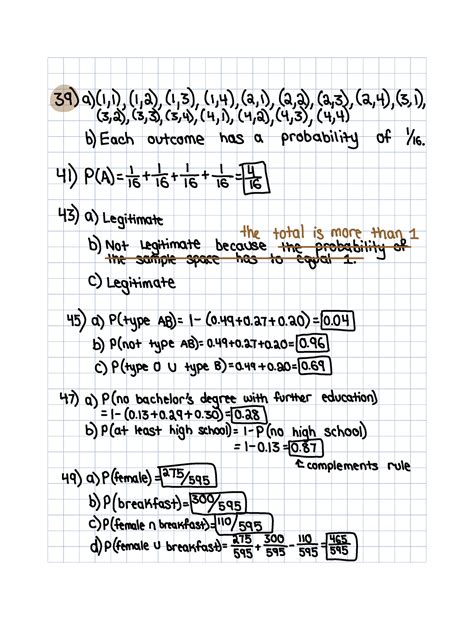 39) a) (1,1), (1,2), (1,3), (1,4), (2,1), (2,2), (2,3), (2,4), (3,1),
(3,2), (3,3), (3,4), (4,1), (4,2), (4,3), (4,4)
b) Each outcome has a probability of 1/16.
41) P(A) = 1/16 + 1/16 + 1/16 + 1/16 = 4/16
43) a) Legitimate
the total is more than 1
b) Not Legitimate because the probability of
the sample space has to equal 1.
c) Legitimate
45) a) P(type AB) = 1 - (0.49+0.27+0.20) = 0.04
b) P(not type AB) = 0.49+0.27+0.20 = 0.96
c) P(type O U type B) = 0.49 + 0.20 = 0.69
47) a) P(no bachelor's degree with further education)
= 1 - (0.13+0.29+0.30) = 0.28
b) P(at least high school) = 1 - P(no high school)
= 1 - 0.13 = 0.87
↑ complements rule
49) a) P(female) = 275/595
b) P(breakfast) = 300/595
c) P(female ∩ breakfast) = 110/595
d) P(female U breakfast) = 275/595 + 300/595 - 110/595 = 465/595